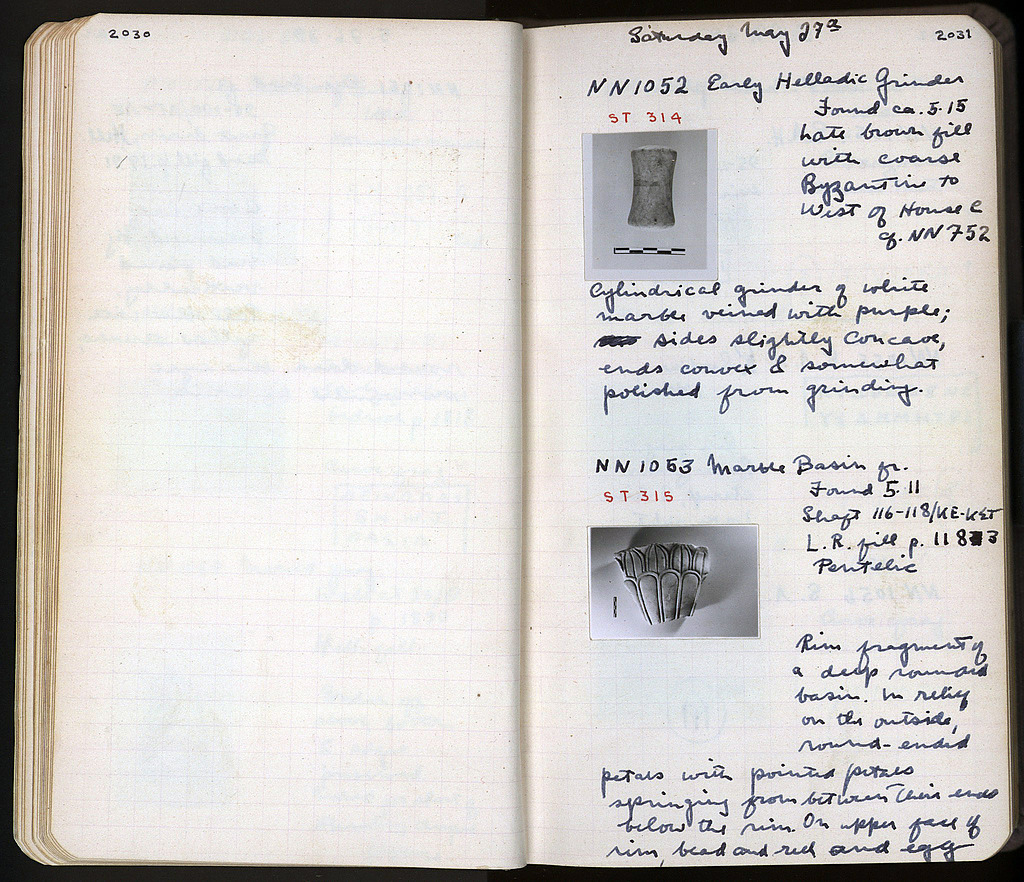 2030
2031
Saturday May 27th
NN1052 Early Helladic Grinder
ST 314
Found ca. 5.15
Late brown fill
with coarse
Byzantine to
West of House C
cf. NN 752
Cylindrical grinder of white
marble veined with purple;
sides slightly concave,
ends convex & somewhat
polished from grinding.
NN 1053 Marble Basin fr.
ST 315
Found 5.11
Shaft 116-118/KE-KST
L.R. fill p. 118
Pentelic
Rim fragment of
a deep rounded
basin. In relief
on the outside,
round-ended
petals with pointed petals
springing from between their ends
below the rim. On upper face of
rim, bead and reel and egg